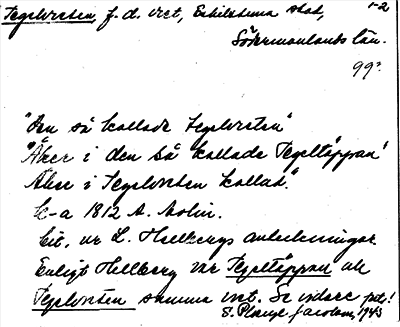 Tegelvreten, f.d. vret, Eskilstuna stad, 1-2
Södermanlands län.
99?
"Den så kallade Tegelvreten"
"Åker i den så kallade Tegeltäppan"
Åker i Tegelvreten kallad."
K-a 1812 A. Molin.
Cit. ur L. Hellbergs anteckningar
Enligt Hellberg var Tegeltäppan och
Tegelvreten samma vret. Se vidare
S. Plange Jacobson, 1943